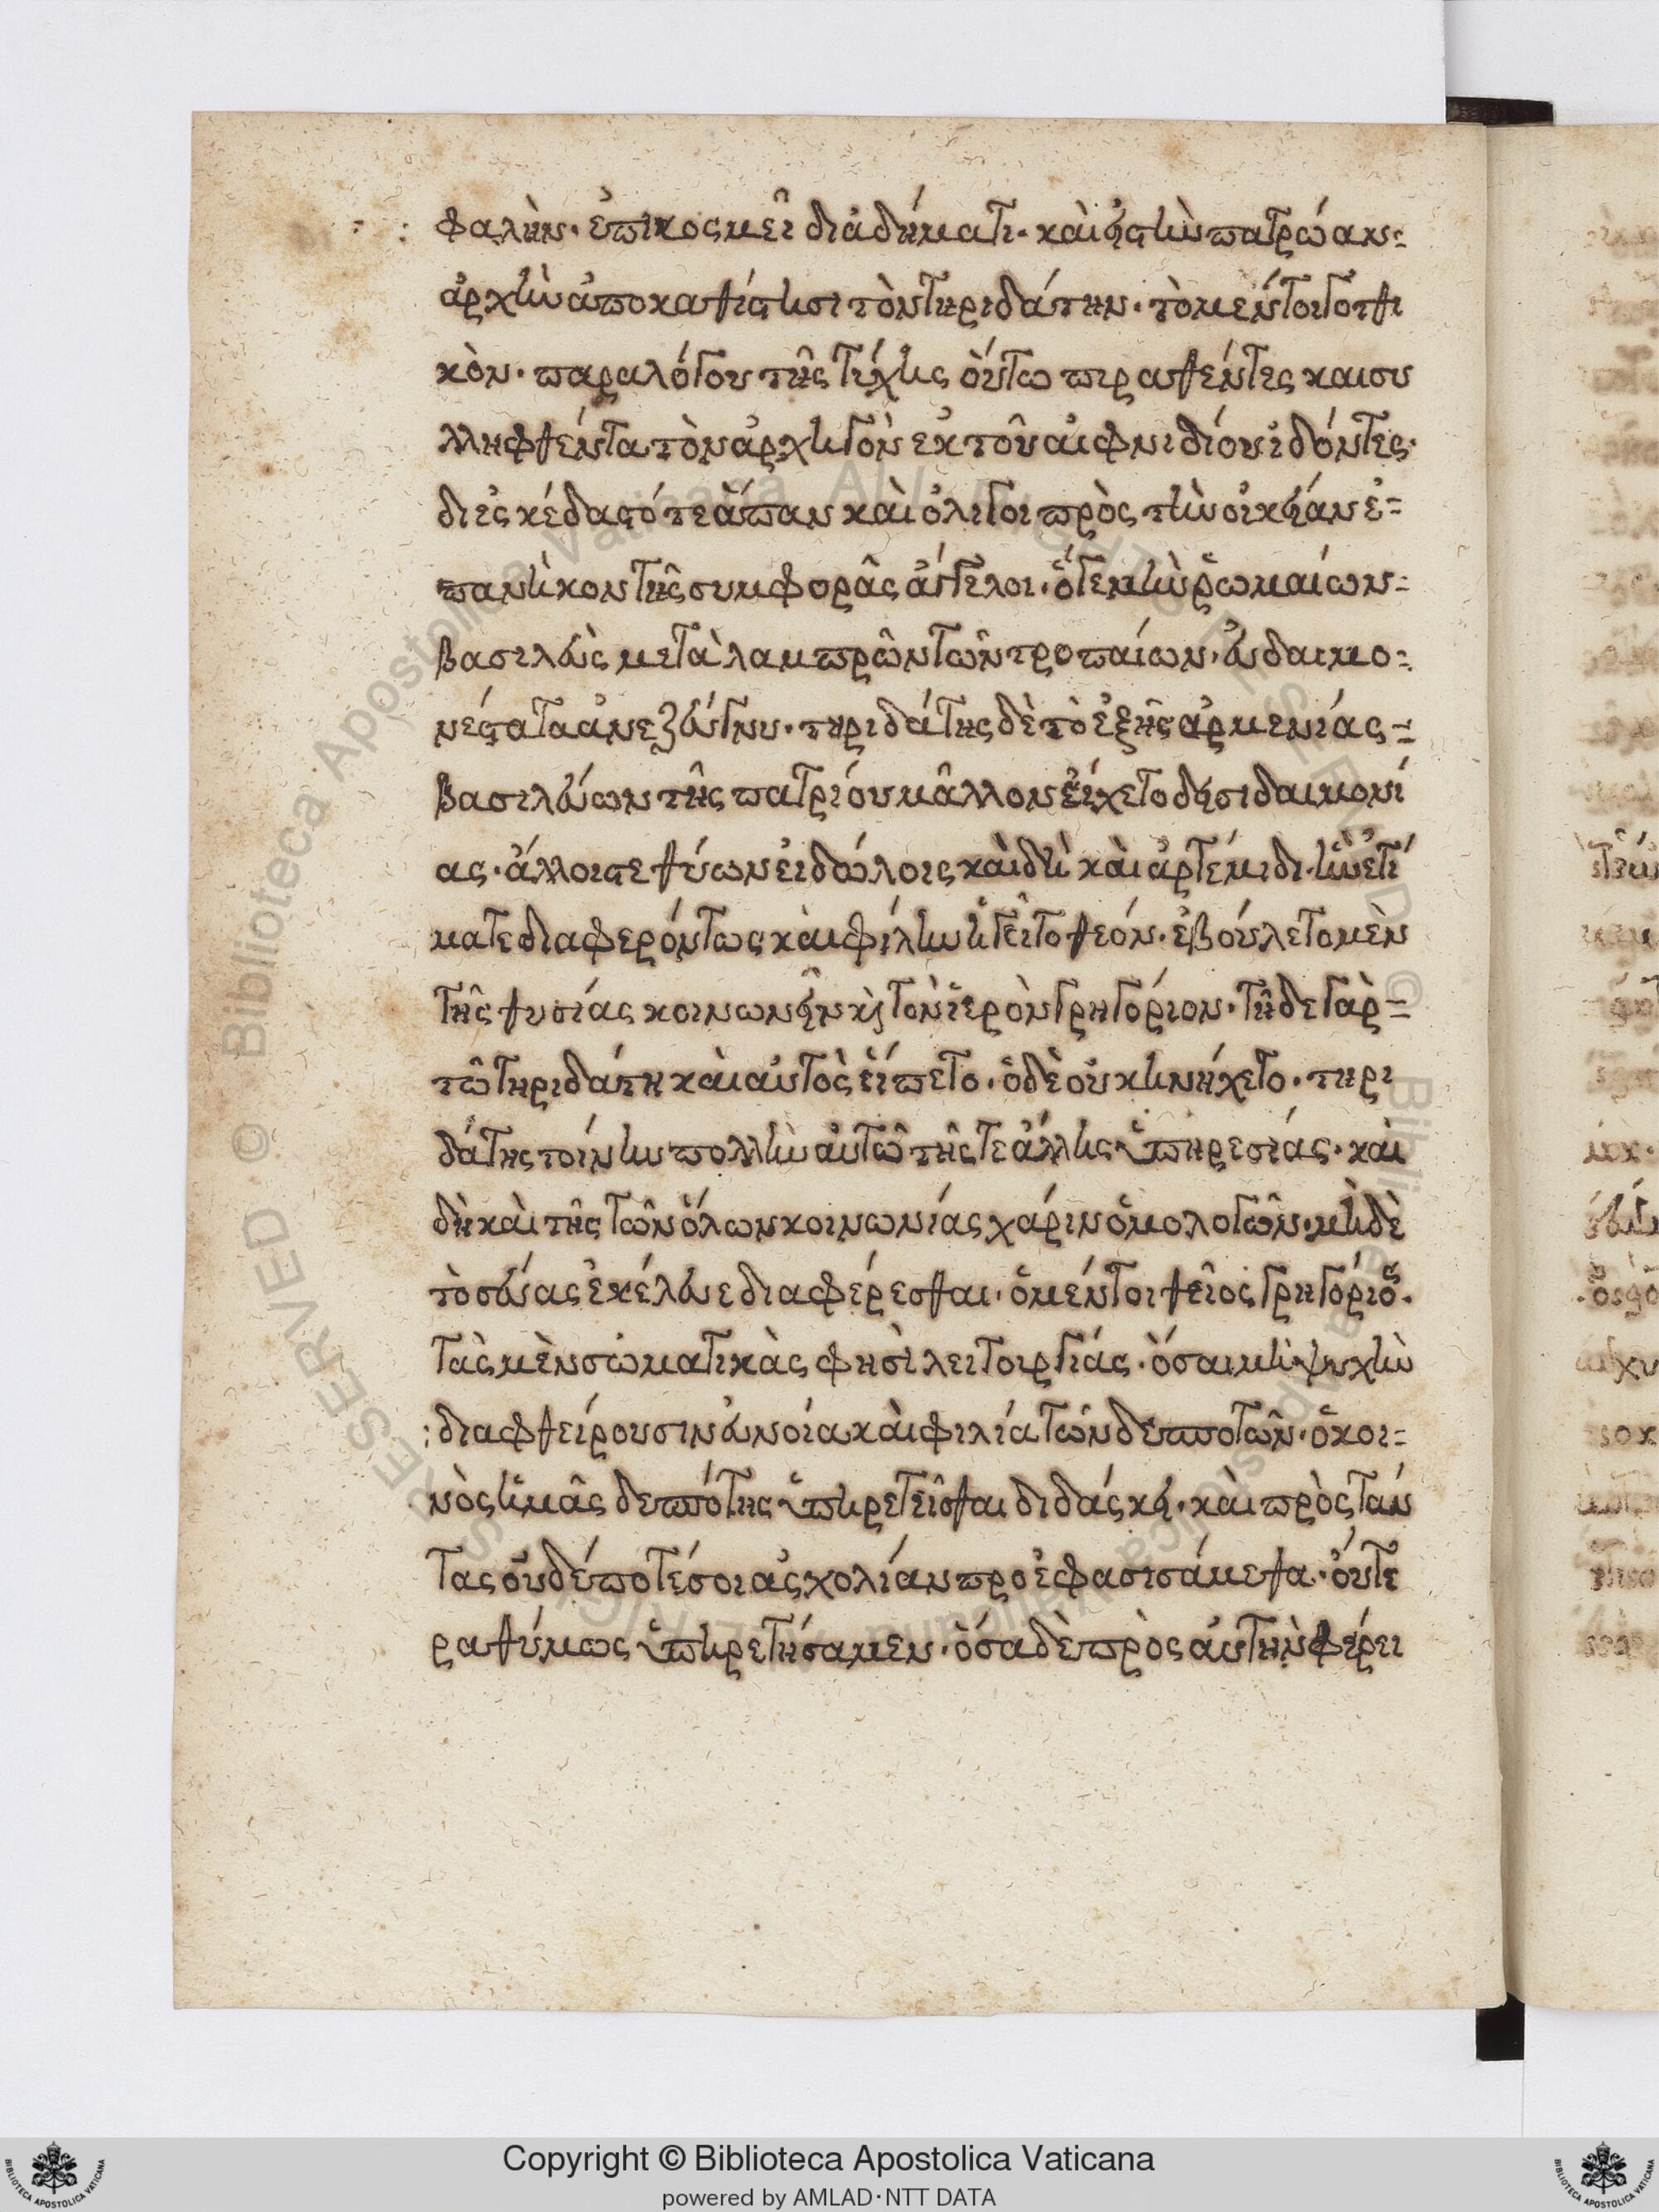 φαλὴν· ἐπικοσμεῖ διαδήματι· καὶ εἰς τὴν πατρώαν
ἀρχὴν ἀποκαθίστησι τὸν τηριδάτην· τὸ μέντοι γοτθι
κὸν· παραλόγου τῆς τύχης οὕτω πιραθέντες και συ
λληφθέντα τὸν ἀρχηγὸν ἐκ τοῦ αἰφνιδίου ἰδόντες·
διεσκέδαστό τε ἅπαν καὶ ὀλίγοι πρὸς τὴν οἰκείαν ἐ
πανήκον τῆς συμφορᾶς ἄγγελοι· ὅ τε μὴν ῥωμαίων
βασιλεὺς μετὰ λαμπρῶν τῶν τροπαίων· εὐδαιμο
νέστατα ἀνεζεύγνυ· τηριδάτης δὲ τὸ ἑξῆς ἀρμενίας
βασιλεύων τῆς πατρίου μᾶλλον εἴχετο δεισιδαιμονί
ας· ἄλλοις τε θύων εἰδώλοις καὶ δὴ καὶ ἀρτέμιδι· ἣν ἐτί
μα τε διαφερόντως καὶ φίλην ἡγεῖτο θεόν· ἐβούλετο μὲν
τῆς θυσίας κοινωνεῖν κὶ τὸν ἱερὸν γρηγόριον· τῆδε γὰρ
τῶ τηριδάτη καὶ αὐτὸς εἵπετο· ὁ δὲ οὐκ ἠνήχετο· τηρι
δάτης τοίνυν πολλὴν αὐτῶ τῆς τε ἄλλης ὑπηρεσίας· καὶ
δὴ καὶ τῆς τῶν ὅλων κοινωνίας χάριν ὁμολογῶν· μὴ δὲ
τὸ σέβας ἐκέλευε διαφέρεσθαι· ὁ μέντοι θεῖος γρηγόριος·
τὰς μὲν σωματικὰς φησὶ λειτουργίας· ὅσαι μὴ ψυχὴν
διαφθείρουσιν εὐνοία καὶ φιλία τῶν δεσποτῶν· ὁ κοι
νὸς ἡμᾶς δεσπότης ὑπηρετεῖσθαι διδάσκει· καὶ πρὸς ταύ
τας οὐδέποτέ σοι ἀσχολίαν προεφασισάμεθα· οὔτε
ραθύμως ὑπηρετήσαμεν· ὅσα δὲ πρὸς αὐτὴν φέρει